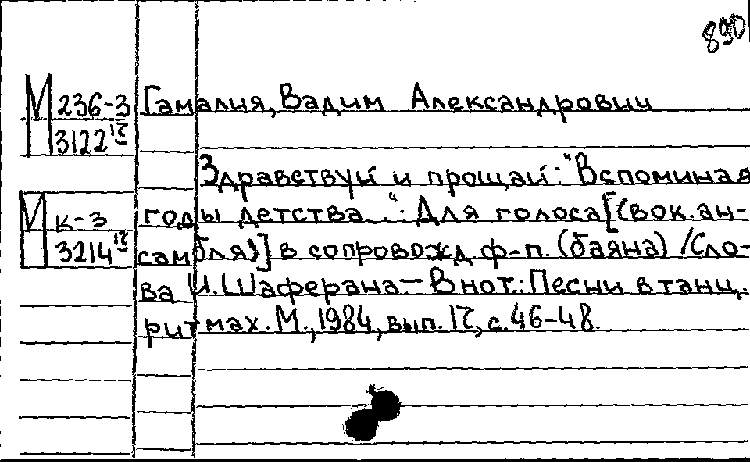 890
М 236-3
3122 17
Гамалия, Вадим Александрович
Здравствуй и прощай: "Вспоминая
М к-3
3214 17
годы детства...": Для голоса [(вок. ан-
самбля)] в сопровожд. ф-п. (баяна) /Сло-
ва И. Шаферана - В нот.: Песни в танц.
ритмах. М., 1984, вып. 17, с. 46-48.